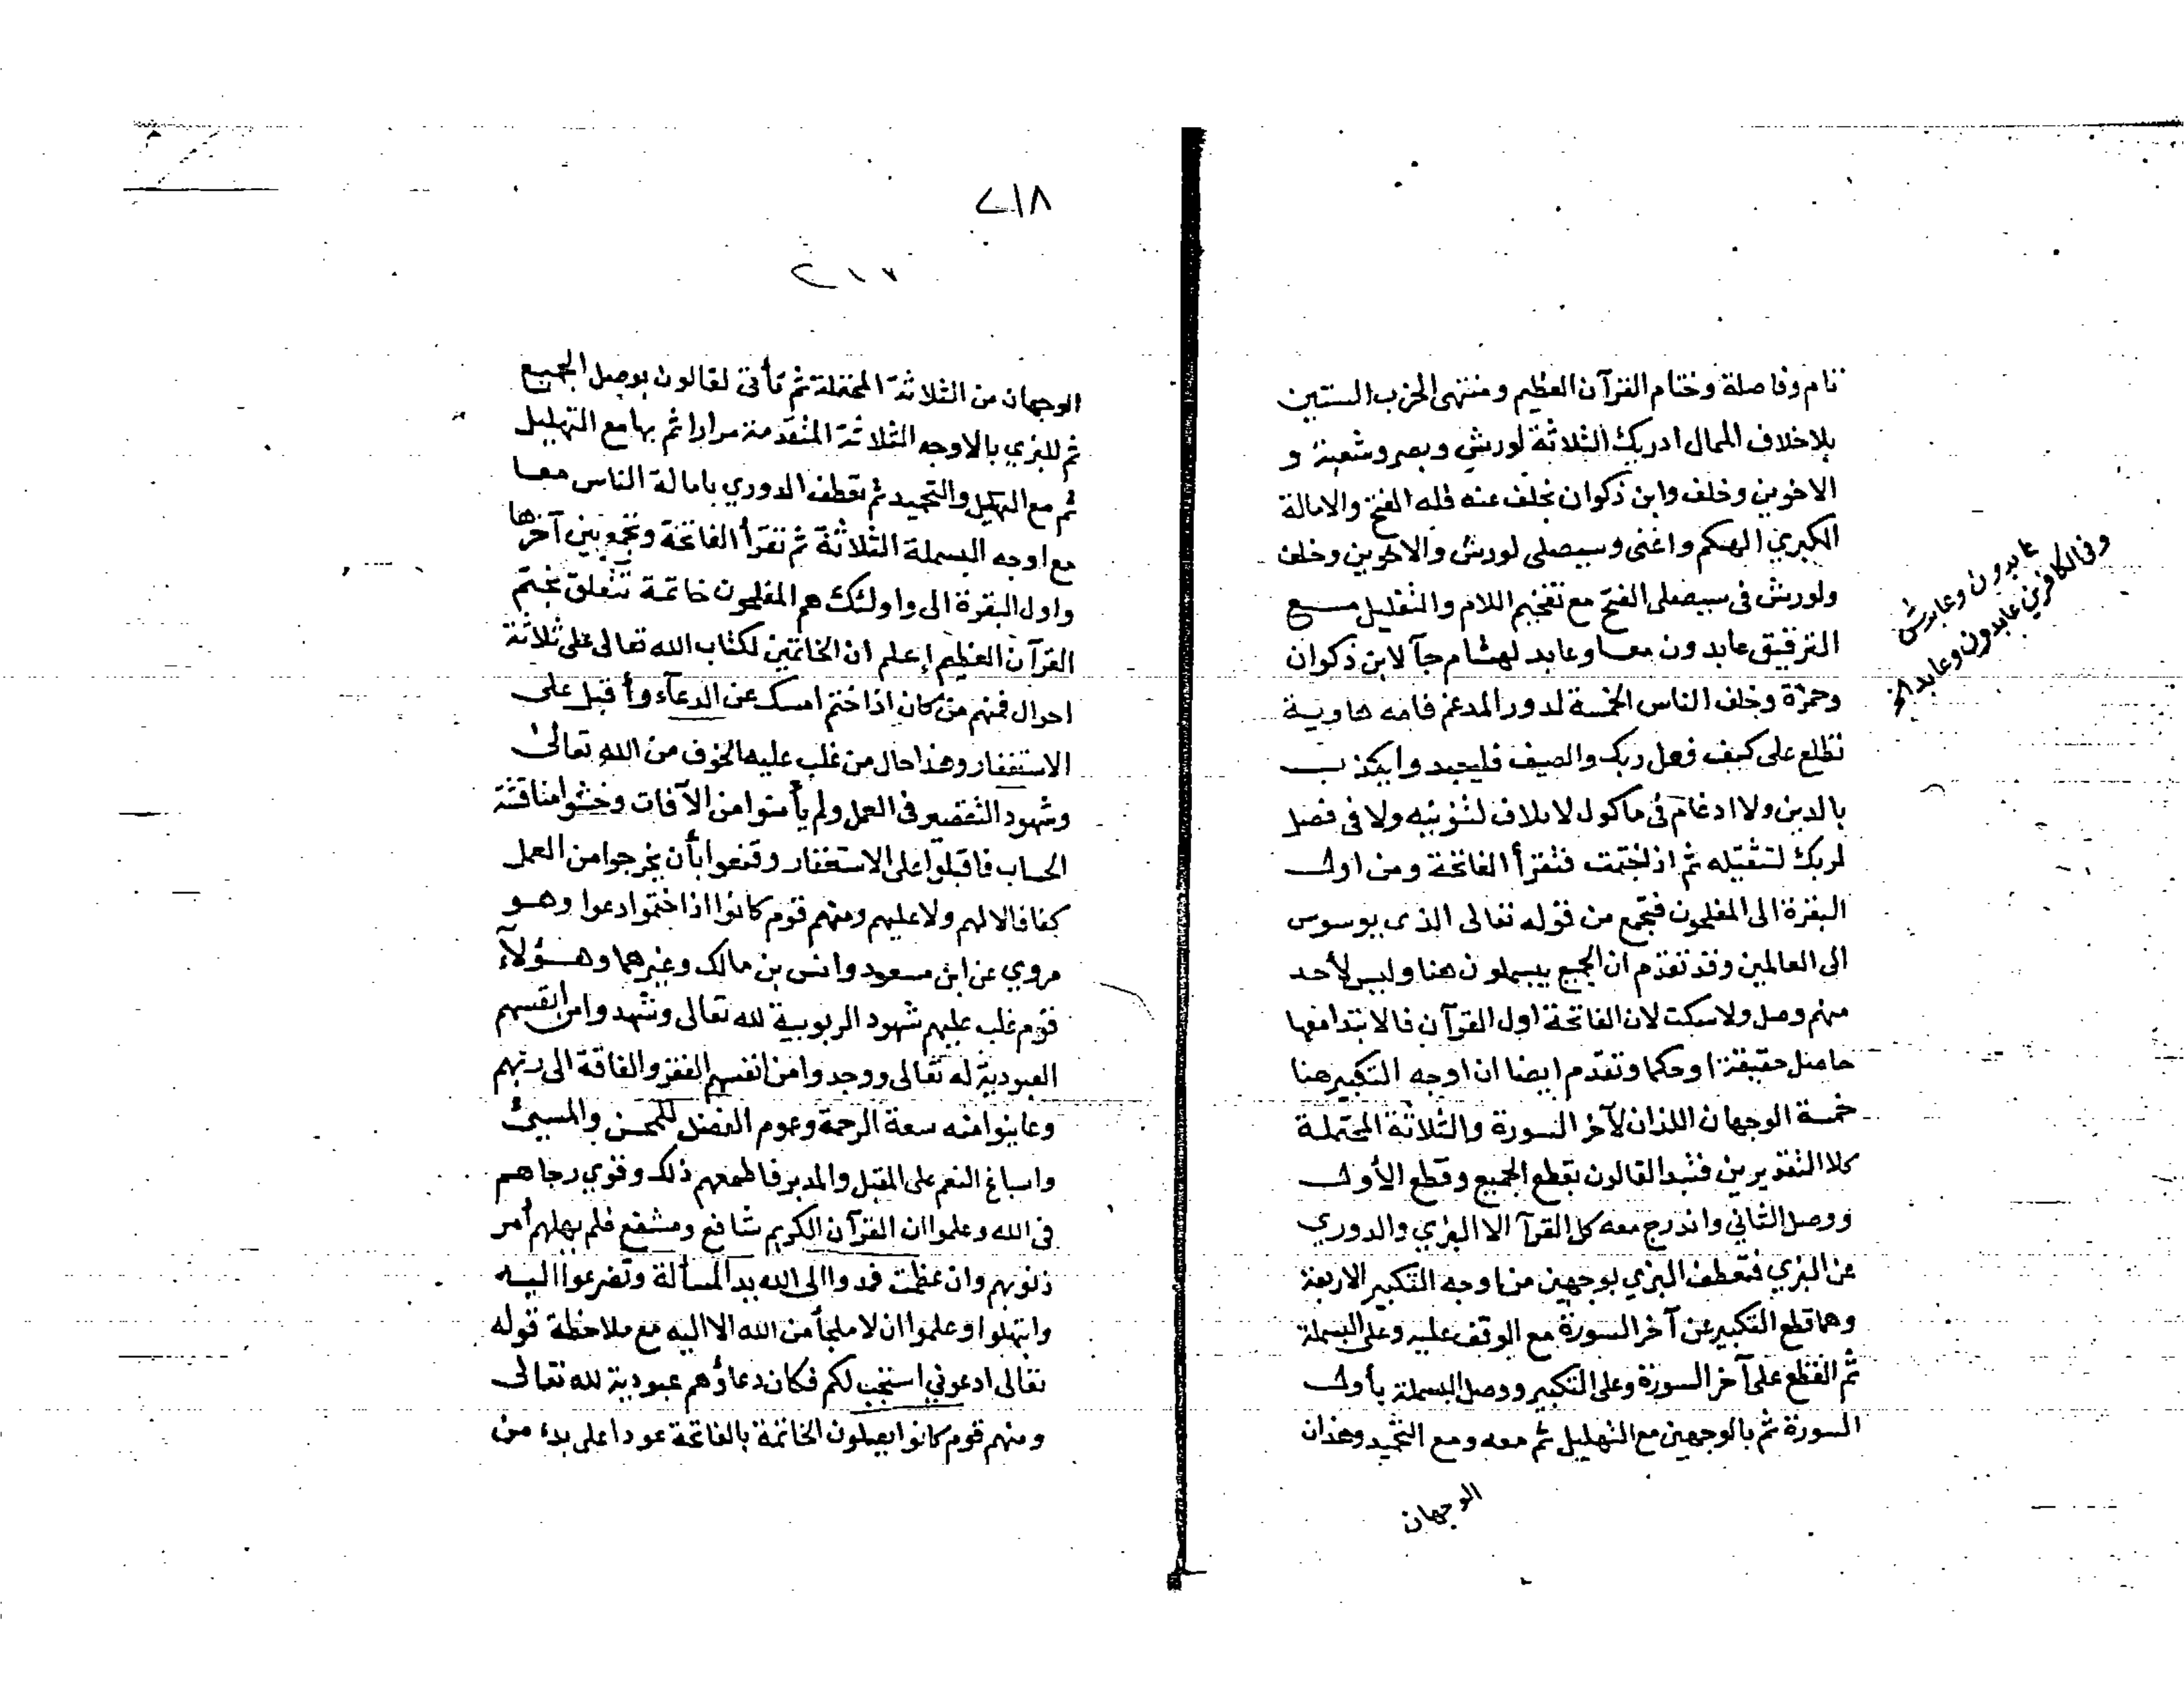 تام وفاصلة وختام القرآن العظيم ومنتهى الحزب الستين
بلا خلاف الممال ادريك الثلاثة لورش وبصر وشعبة و
الاخوين وخلف وابن ذكوان بخلف عنه فله الفتح والامالة
الكبري الهكم واغنى وسيصلى لورش والاخوين وخلف
ولورش فى سيصلى الفتح مع تفخيم اللام والتقليل مع
الترقيق عابدون معا وعابد لهشام جآ لابن ذكوان
وحمزة وخلف الناس الخمسة لدور المدغم فامه هاوية
تطلع على كيف فعل ربك والصيف فليعبد وا يكذب
بالدين ولا ادغام فى ماكول لايلاف لتنوينه ولا فى فصل
لربك لتثقيله ثم اذا ختمت فتقرأ الفاتحة ومن اول
البقرة الى المفلحون فتجمع من قوله تعالى الذى يوسوس
الى العالمين وقد تقدم ان الجميع يبسملون هنا وليس لأحد
منهم وصل ولا سكت لان الفاتحة اول القرآن فالابتدا معها
حاصل حقيقة او حكما وتقدم ايضا ان اوجه التكبير هنا
خمسة الوجهان اللذان لآخر السورة والثلاثة المحتملة
كلا التقديرين فتبدا لقالون بقطع الجميع وقطع الأول
ووصل الثاني واندرج معه كل القرآ الا البزي والدوري
عن البزي فتعطف البزي بوجهين من اوجه التكبير الاربعة
وهما قطع التكبير عن آخر السورة مع الوقف عليه وعلى البسملة
ثم القطع على آخر السورة وعلى التكبير ووصل البسملة بأول
السورة ثم بالوجهين مع التهليل ثم معه ومع التحميد وهذان
الوجهان
عابدون وعابد
وفى الكافرين عابدون وعابد الخ
٢١٨
٢١٧
الوجهان من الثلاثة المحتملة ثم تأتى لقالون بوصل الجميع
ثم للبزي بالاوجه الثلاثة المتقدمة مرارا ثم بها مع التهليل
ثم مع التهليل والتحميد ثم تعطف الدوري بامالة الناس معا
مع اوجه البسملة الثلاثة ثم تقرأ الفاتحة وتجمع بين آخرها
واول البقرة الى واولئك هم المفلحون خاتمة تتعلق بختم
القرآن العظيم إعلم ان الخاتمين لكتاب الله تعالى على ثلاثة
احوال فمنهم من كان اذا ختم امسك عن الدعآء وأقبل على
الاستغفار وهذا حال من غلب عليه الخوف من الله تعالى
وشهود التقصير فى العمل ولم يأمنوا من الآفات وخشوا مناقشة
الحساب فاقبلوا على الاستغفار وقنعوا بأن يخرجوا من العمل
كفافا لا لهم ولا عليهم ومنهم قوم كانوا اذا ختموا دعوا وهو
مروي عن ابن مسعود وانس بن مالك وغيرهما وهؤلآء
قوم غلب عليهم شهود الربوبية لله تعالى وشهدوا من انفسهم
العبودية له تعالى ووجدوا من انفسهم الفقر والفاقة الى ربهم
وعاينوا منه سعة الرحمة وعموم الفضل للمحسن والمسيئ
واسباغ النعم على المقبل والمدبر فاطمعهم ذلك وقوي رجاهم
فى الله وعلموا ان القرآن الكريم شافع ومشفع فلم يهلهم أمر
ذنوبهم وان عظمت فمدوا الى الله يد المسألة وتضرعوا اليه
وابتهلوا وعلموا ان لا ملجأ من الله الا اليه مع ملاحظة قوله
تعالى ادعوني استجب لكم فكان دعاؤهم عبودية لله تعالى
ومنهم قوم كانوا يصلون الخاتمة بالفاتحة عودا على بدء من